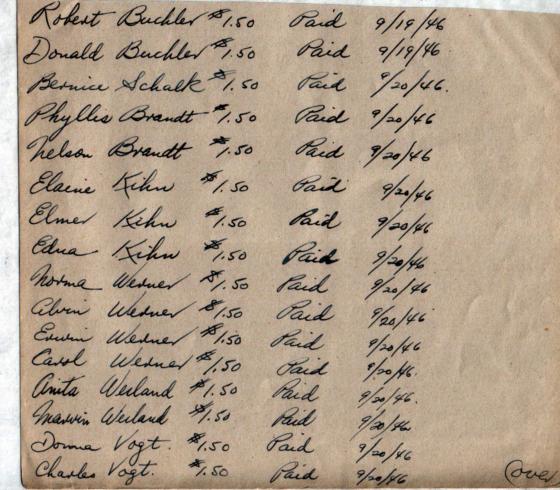 Robert Buchler $1.50 Paid 9/19/46
Donald Buchler $1.50 Paid 9/19/46
Bernice Schalk $1.50 Paid 9/20/46.
Phyllis Brandt $1.50 Paid 9/20/46
Nelson Brandt $1.50 Paid 9/20/46
Elaine Kihn $1.50 Paid 9/20/46
Elmer Kihn $1.50 Paid 9/20/46
Edna Kihn $1.50 Paid 9/20/46
Norma Werner $1.50 Paid 9/20/46
Alvin Werner $1.50 Paid 9/20/46
Erwin Werner $1.50 Paid 9/20/46
Carol Werner $1.50 Paid 9/20/46.
Anita Weiland $1.50 Paid 9/20/46.
Marvin Weiland $1.50 Paid 9/20/46
Donna Vogt. $1.50 Paid 9/20/46
Charles Vogt. $1.50 Paid 9/20/46 (over